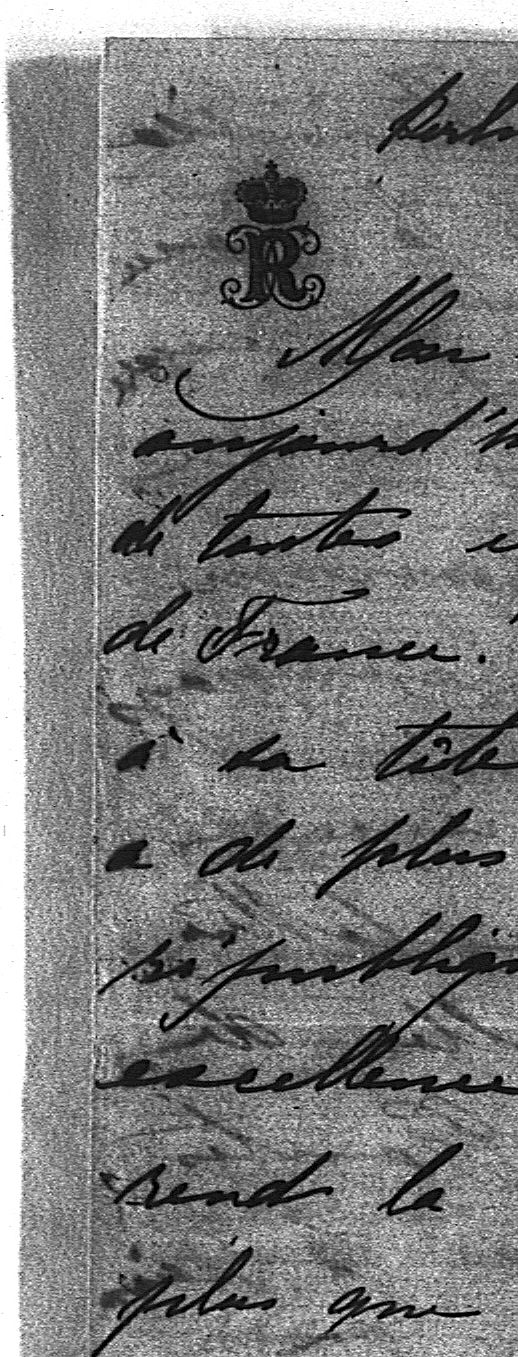 R
Mon
aujourd'h
de toutes
de France.
à sa tête
a de plus
républiqu
excellence
rends la
plus que